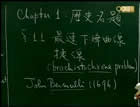 Chapter 1: 历史名题
§1.1 最速下降曲线
捷线
(brachistochrone problem)
John Bernoulli (1696)